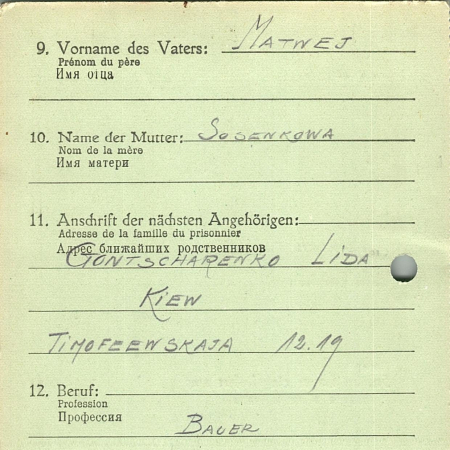 9. Vorname des Vaters: Matwej
Prénom du père
Имя отца
10. Name der Mutter: Sosenkowa
Nom de la mère
Имя матери
11. Anschrift der nächsten Angehörigen:
Adresse de la famille du prisonnier
Адрес ближайших родственников
Gontscharenko Lida
Kiew
Timofeewskaja 12.19
12. Beruf:
Profession
Профессия
Bauer